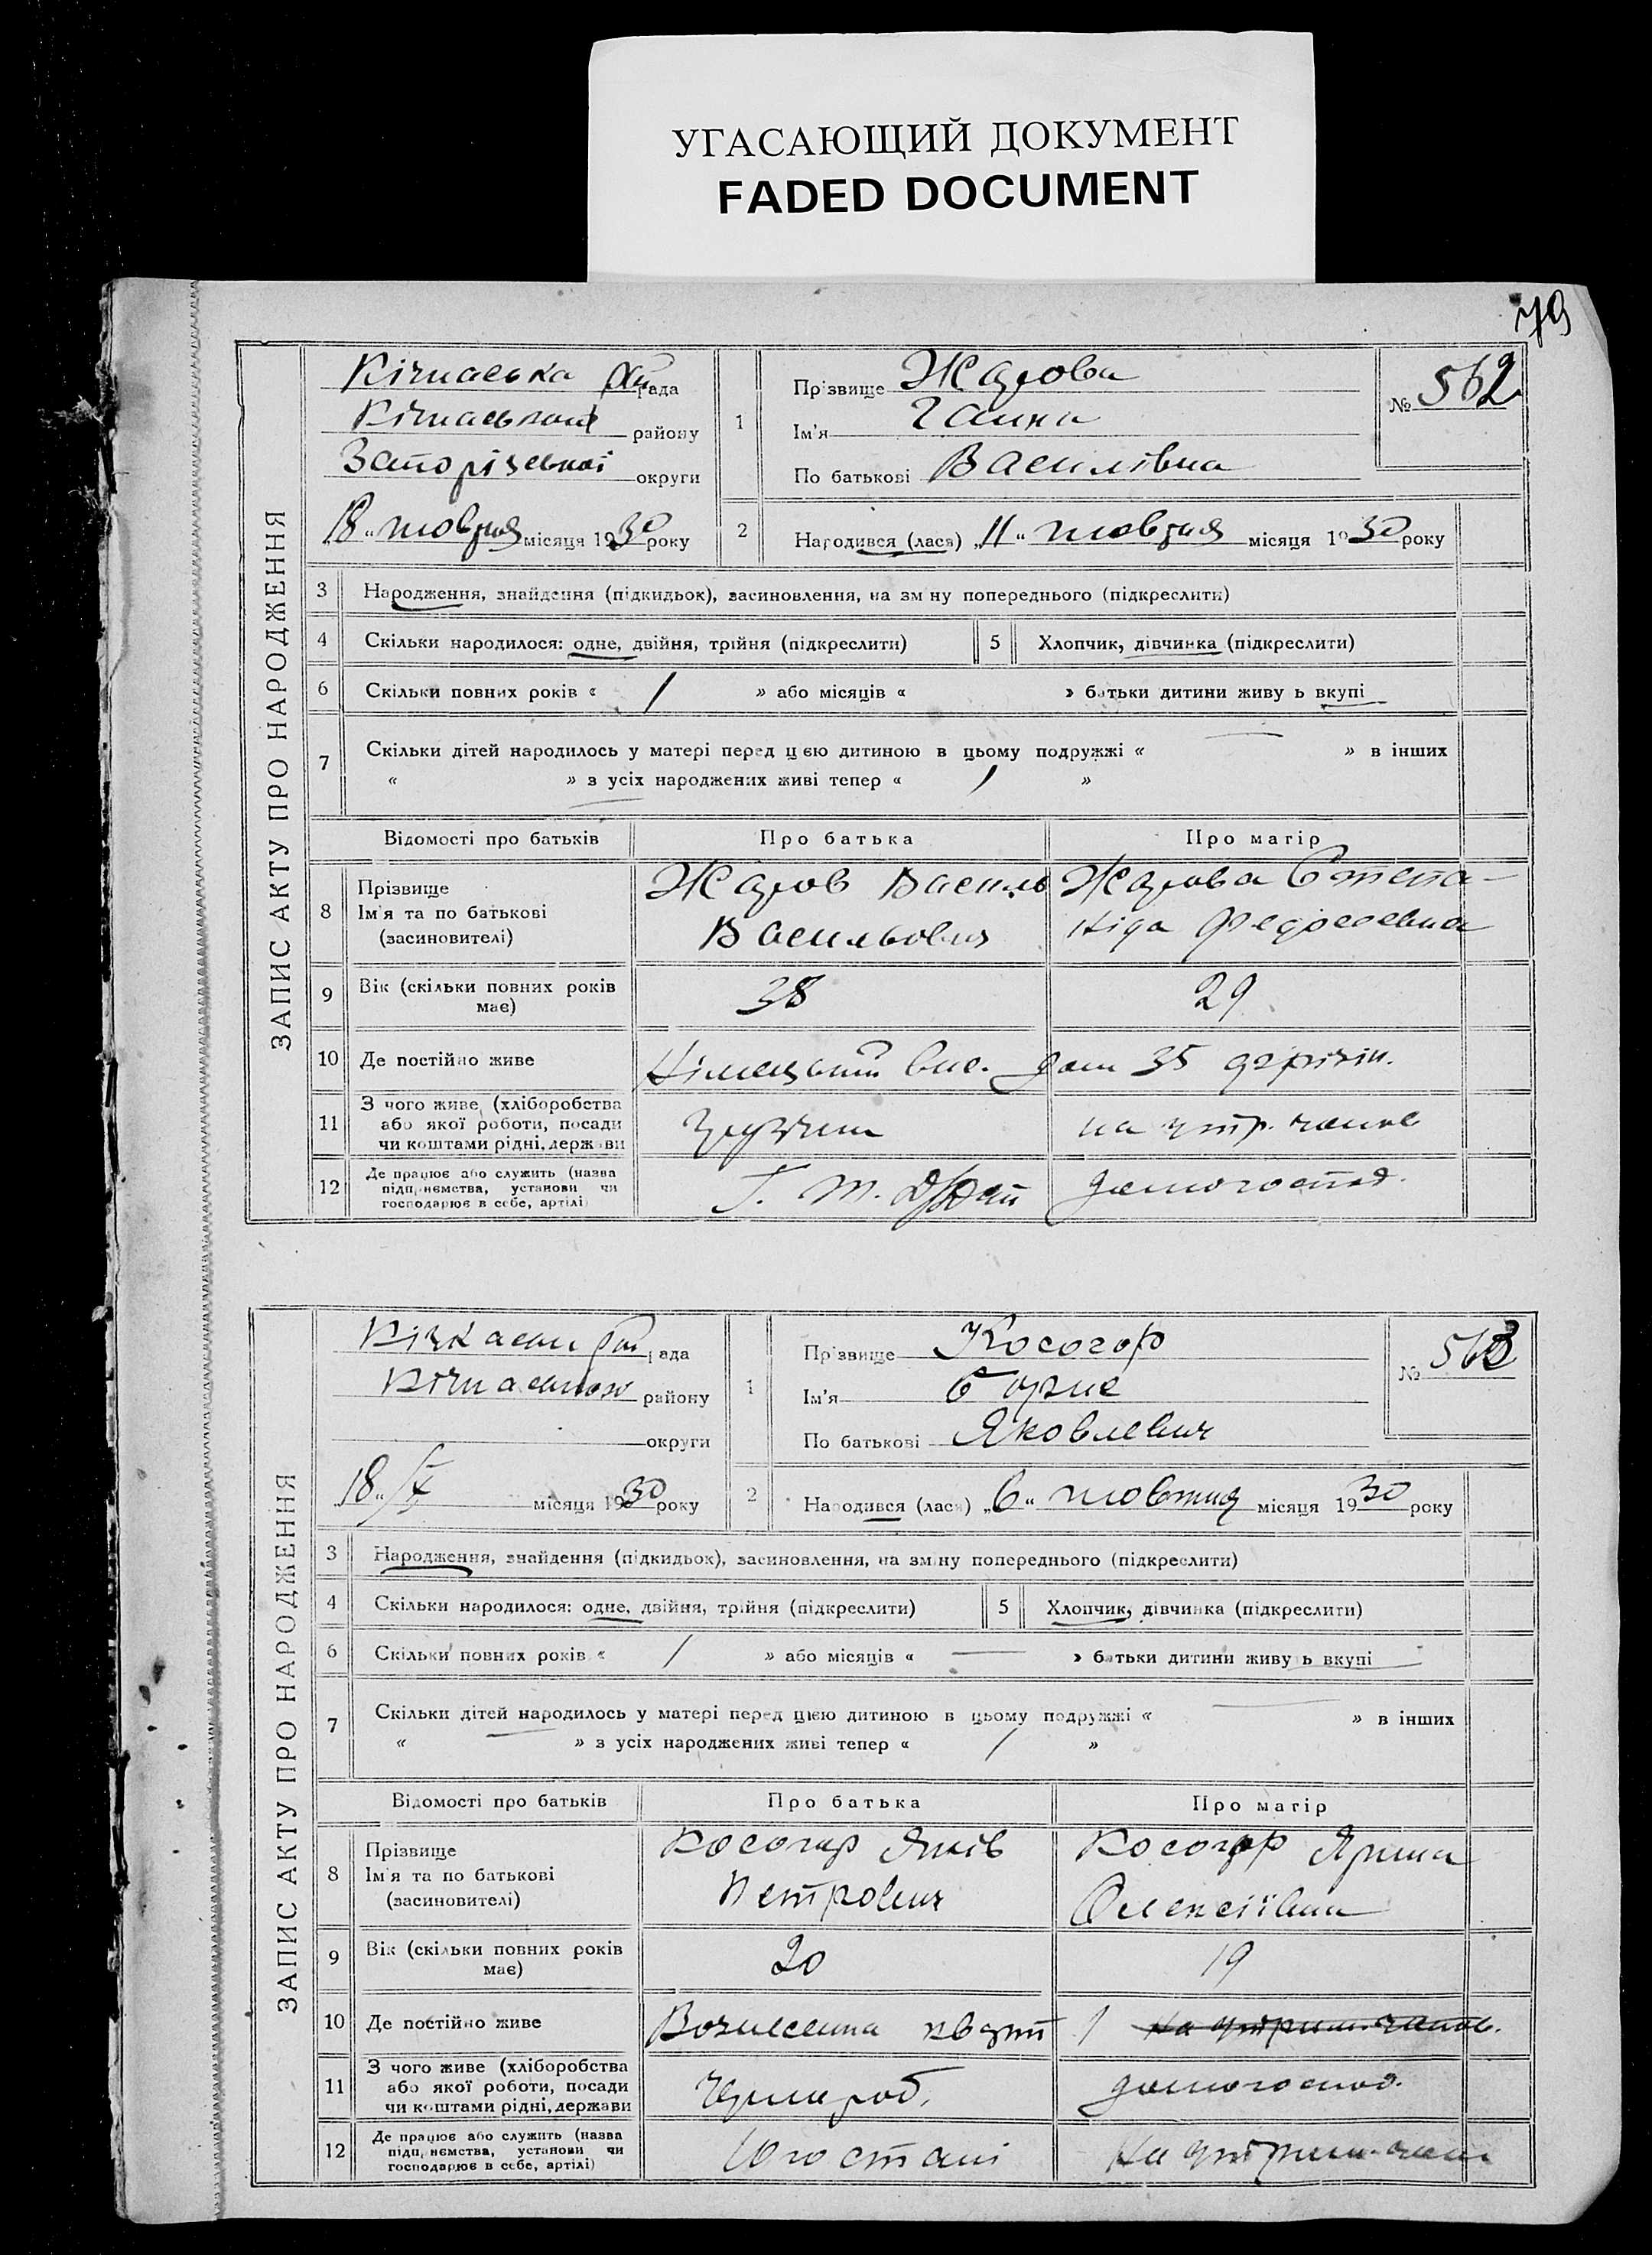 УГАСАЮЩИЙ ДОКУМЕНТ
FADED DOCUMENT
79
ЗАПИС АКТУ ПРО НАРОДЖЕННЯ
Кічкаська рада
району
Запорізької округи
18 „ жовтня місяця 1930 року
1
Прізвище Жарова
Ім'я Ганна
По батькові Василівна
№ 562
2
Народився (лася) „11„ жовтня місяця 1930 року
3 Народження, знайдення (підкидьок), засиновлення, на зміну попереднього (підкреслити)
4 Скільки народилося: одне, двійня, трійня (підкреслити)
5 Хлопчик, дівчинка (підкреслити)
6 Скільки повних років « / » або місяців « » батьки дитини живуть вкупі
7 Скільки дітей народилось у матері перед цією дитиною в цьому подружжі « — » в інших
« — » з усіх народжених живі тепер « 1 »
Відомості про батьків Про батька Про матір
8 Прізвище
Ім'я та по батькові
(засиновителі)
Жаров Василь
Васильович
Жарова Степа-
ніда
9 Вік (скільки повних років
має)
38 29
10 Де постійно живе
Німецький вис. дом 35
11 З чого живе (хліборобства
або якої роботи, посади
чи коштами рідні, держави
на утр. чолов
12 Де працює або служить (назва
підприємства, установи чи
господарює в себе, артілі)
домогоспод.
ЗАПИС АКТУ ПРО НАРОДЖЕННЯ
рада
району
округи
18„/X місяця 1930 року
1
Прізвище Косогор
Ім'я
По батькові Яковлевич
№ 563
2
Народився (лася) „6„ жовтня місяця 1930 року
3 Народження, знайдення (підкидьок), засиновлення, на зміну попереднього (підкреслити)
4 Скільки народилося: одне, двійня, трійня (підкреслити)
5 Хлопчик, дівчинка (підкреслити)
6 Скільки повних років « / » або місяців « — » батьки дитини живуть вкупі
7 Скільки дітей народилось у матері перед цією дитиною в цьому подружжі « — » в інших
« — » з усіх народжених живі тепер « 1 »
Відомості про батьків Про батька Про матір
8 Прізвище
Ім'я та по батькові
(засиновителі)
Косогор Яків
Петрович
Косогор Ярина
Олексіївна
9 Вік (скільки повних років
має)
20 19
10 Де постійно живе
Вознесенка
11 З чого живе (хліборобства
або якої роботи, посади
чи коштами рідні, держави
Чорнороб.
домогоспод.
12 Де працює або служить (назва
підприємства, установи чи
господарює в себе, артілі)
Югосталі